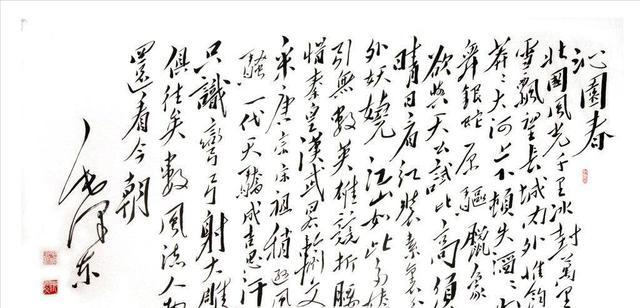 沁園春
北國風光千里冰封萬里
雪飄望長城內外惟餘
莽々大河上下頓失滔々
舞銀蛇原驅臘象
欲與天公試比高須
晴日看紅裝素裹
外妖嬈江山如此多嬌
引無數英雄競折腰
惜秦皇漢武略輸文
采唐宗宋祖稍遜風
騷一代天驕成吉思汗
只識彎弓射大雕
俱往矣數風流人
還看今朝
毛澤東